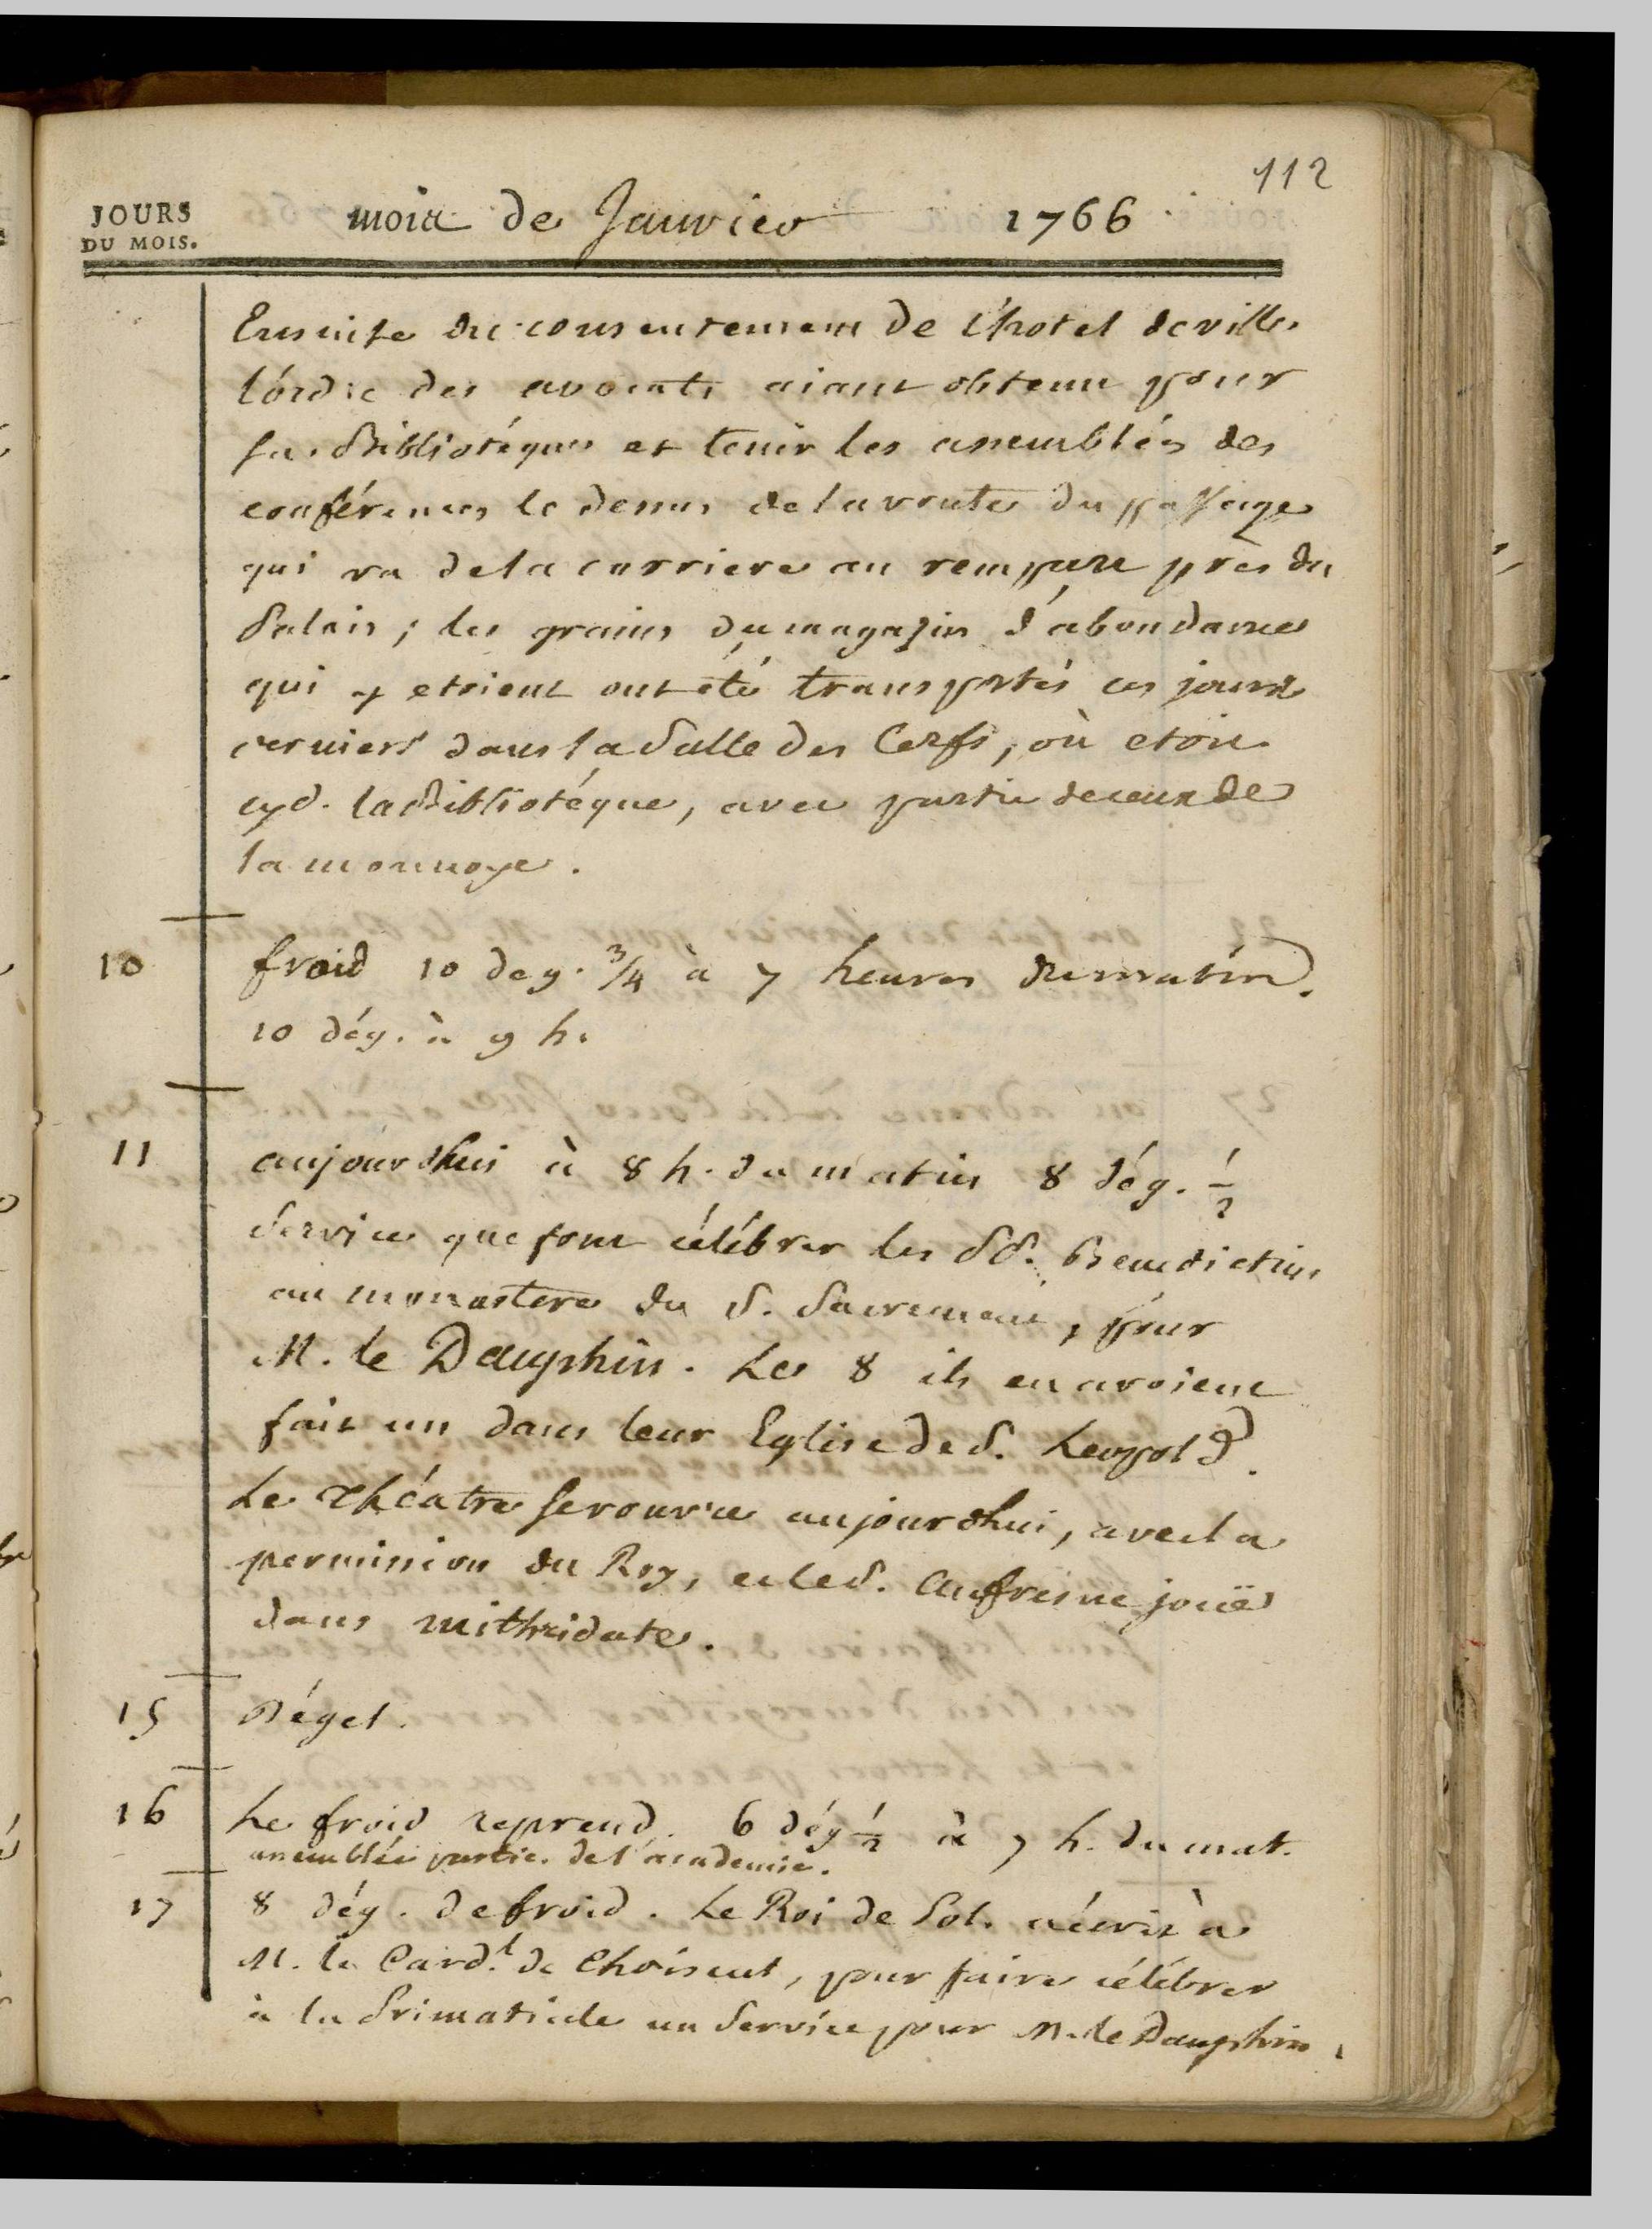 112
JOURS
DU MOIS.
mois de Janvier 1766
Ensuite du consentement de l'hotel de ville,
l'ordre des avocats aiant obtenu pour
sa Bibliotéque et tenir les assemblées des
conférences le dessus de la voute du passage
qui va de la carriere au rempart près du
Palais ; les grains du magazin d'abondance
qui y etoient ont été transportés ces jours
derniers dans la Salle des Cerfs, où etoit
cyd. la Bibliotéque, avec partie de ceux de
la monnoye.
10 froid 10 deg. 3/4 à 7 heures du matin.
10 dég. à 9 h.
11 aujourdhui à 8 h. du matin 8 dég. 1/2
Service que font célébrer les PP. Benedictins
au monastere du S. Sacrement, pour
M. le Dauphin. Le 8 ils en avoient
fait un dans leur Eglise de S. Leopold.
Le Théatre se rouvre aujourdhui, avec la
permission du Roy, et le S. Aufresne joüe
dans Mithridate.
15 Dégel.
16 Le froid reprend. 6 dég 1/2 à 7 h. du mat.
assemblée partic. de l'academie.
17 8 dég. de froid. Le Roi de Pol. a écrit à
M. le Card.l de Choiseul, pour faire célébrer
à la Primatiale un Service pour M. le Dauphin,